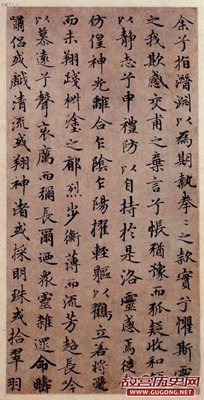 余兮指潛淵以為期執拳〻之款實兮懼斯靈
之我欺感交甫之棄言兮悵猶豫而狐疑收和顏
以靜志兮申禮防以自持於是洛靈感焉徙倚
彷徨神光離合乍陰乍陽擢輕軀以鶴立若將飛
而未翔踐椒塗之郁烈步蘅薄而流芳超長吟
以慕遠兮聲哀厲而彌長爾迺眾靈雜遝命疇
嘯侶或戲清流或翔神渚或採明珠或拾翠羽
故宫历史网